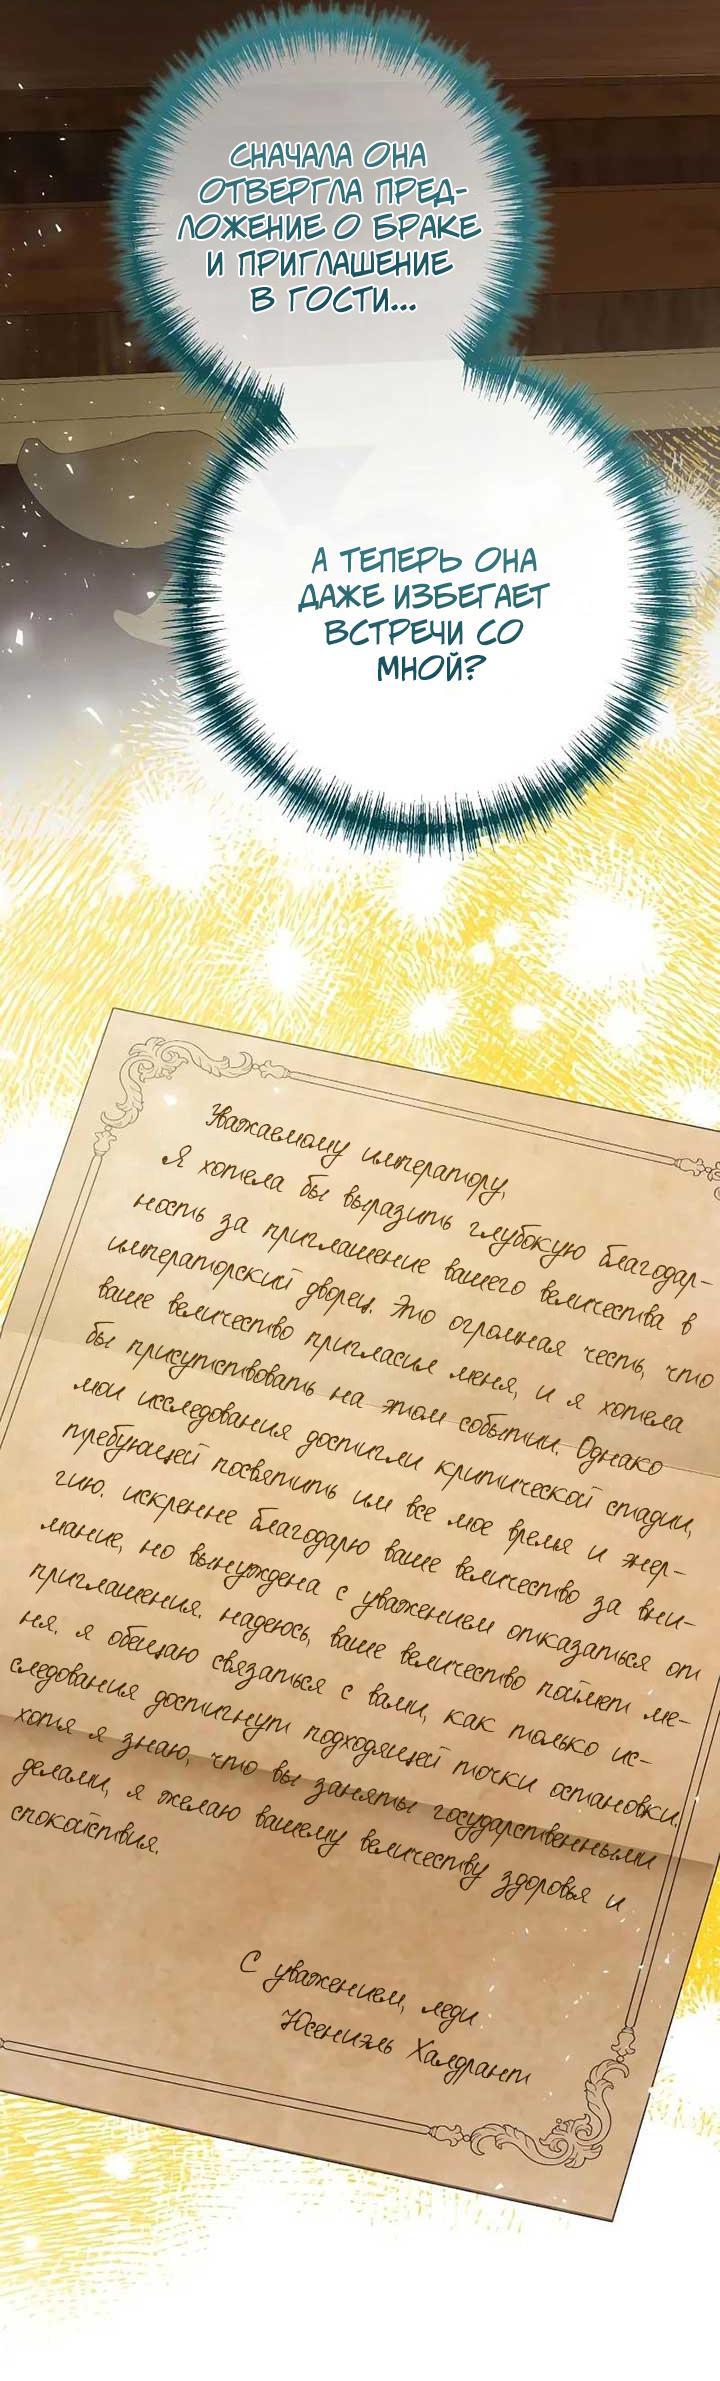 СНАЧАЛА ОНА
ОТВЕРГЛА ПРЕД-
ЛОЖЕНИЕ О БРАКЕ
И ПРИГЛАШЕНИЕ
В ГОСТИ...
А ТЕПЕРЬ ОНА
ДАЖЕ ИЗБЕГАЕТ
ВСТРЕЧИ СО
МНОЙ?
Уважаемому императору,
Я хотела бы выразить глубокую благодар-
ность за приглашение вашего величества в
императорский дворец. Это огромная честь, что
ваше величество пригласил меня, и я хотела
бы присутствовать на этом событии. Однако
мои исследования достигли критической стадии,
требующей посвятить им все мое время и энер-
гию. искренне благодарю ваше величество за вни-
мание, но вынуждена с уважением отказаться от
приглашения. надеюсь, ваше величество поймет ме-
ня. я обещаю связаться с вами, как только ис-
следования достигнут подходящей точки остановки.
хотя я знаю, что вы заняты государственными
делами, я желаю вашему величеству здоровья и
спокойствия.
С уважением, леди
Юсениэль Халдрант